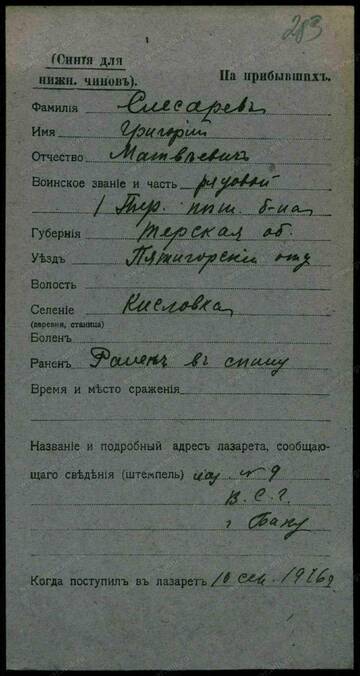 283
(Синія для
нижн. чиновъ).
На прибывшихъ.
Фамилія Слесаревъ
Имя Григорій
Отчество Матвѣевичъ
Воинское званіе и часть рядовой
1 Тер. пѣш. б-на
Губернія Терская об.
Уѣздъ Пятигорскій отд
Волость
Селеніе Кисловка
(деревня, станица)
Боленъ
Раненъ Раненъ въ спину
Время и мѣсто сраженія
Названіе и подробный адресъ лазарета, сообщаю-
щаго свѣдѣнія (штемпель) лаз. №9
В.С.Г.
г. Баку
Когда поступилъ въ лазаретъ 10 сен. 1916г